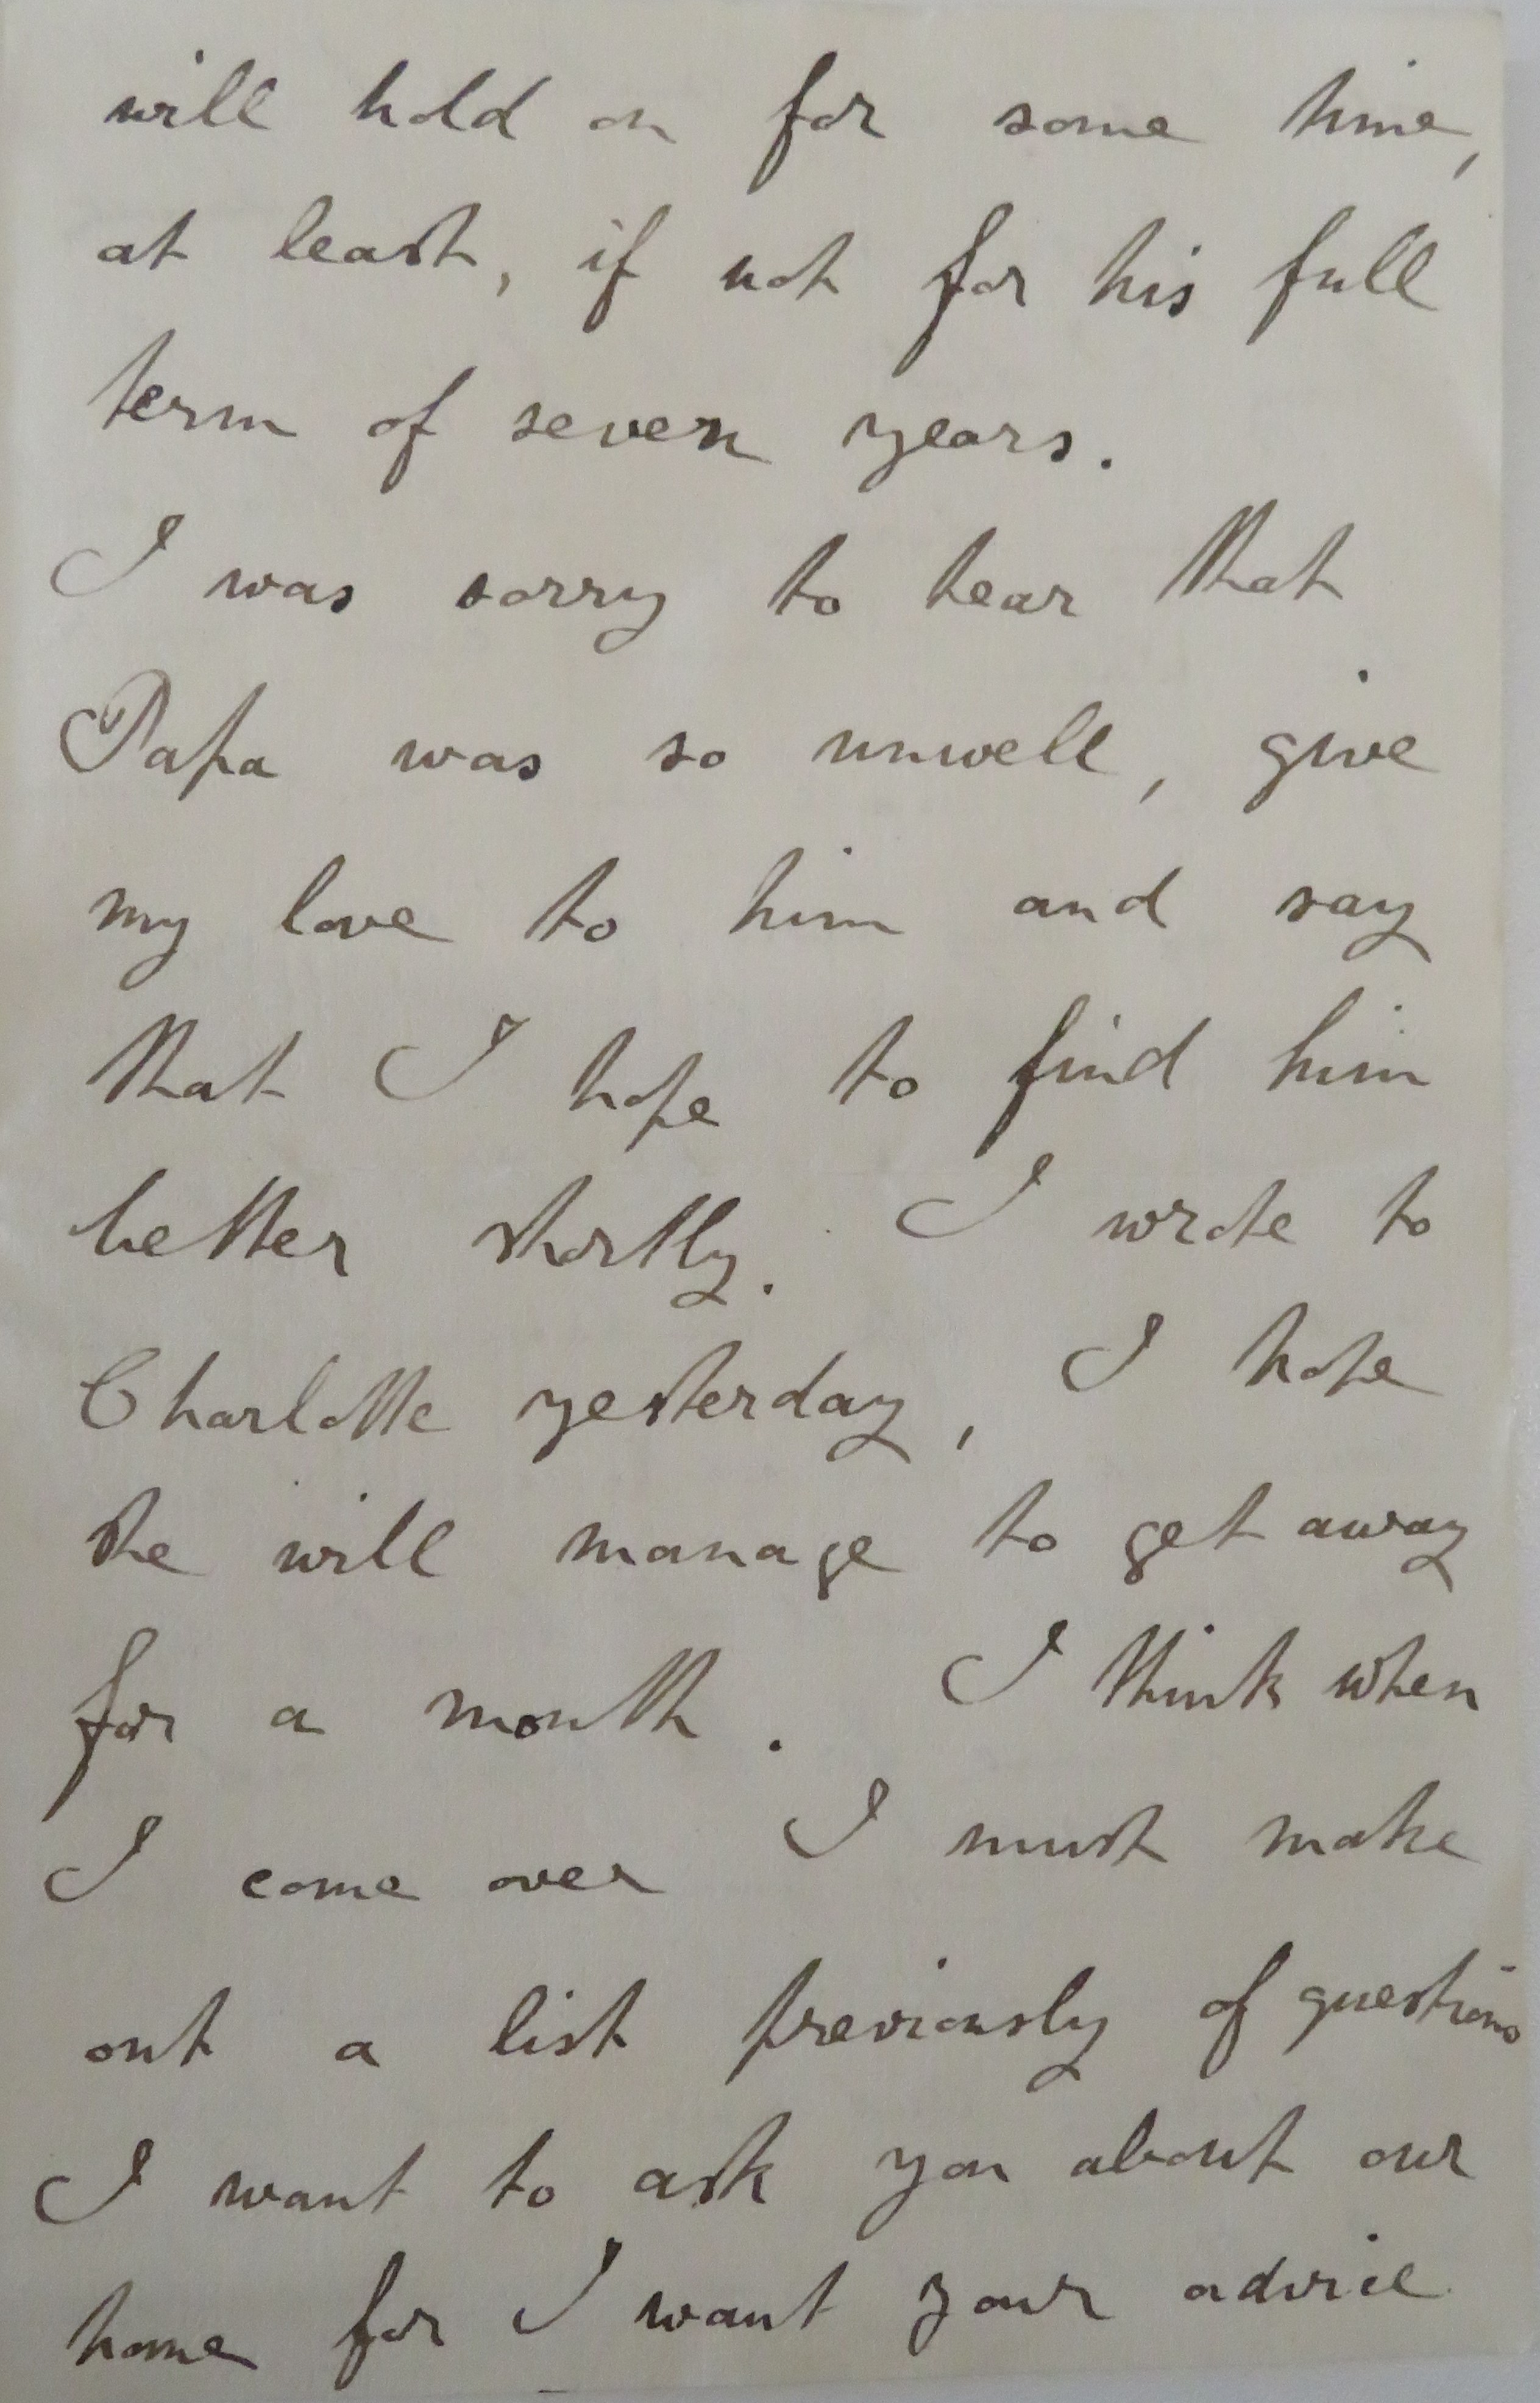 will hold on for some time,
at least, if not for his full
term of seven years.
I was sorry to hear that
Papa was so unwell, give
my love to him and say
that I hope to find him
better shortly. I wrote to
Charlotte yesterday, I hope
she will manage to get away
for a month. I think when
I come over I must make
out a list previously of questions
I want to ask you about our
home for I want your advice